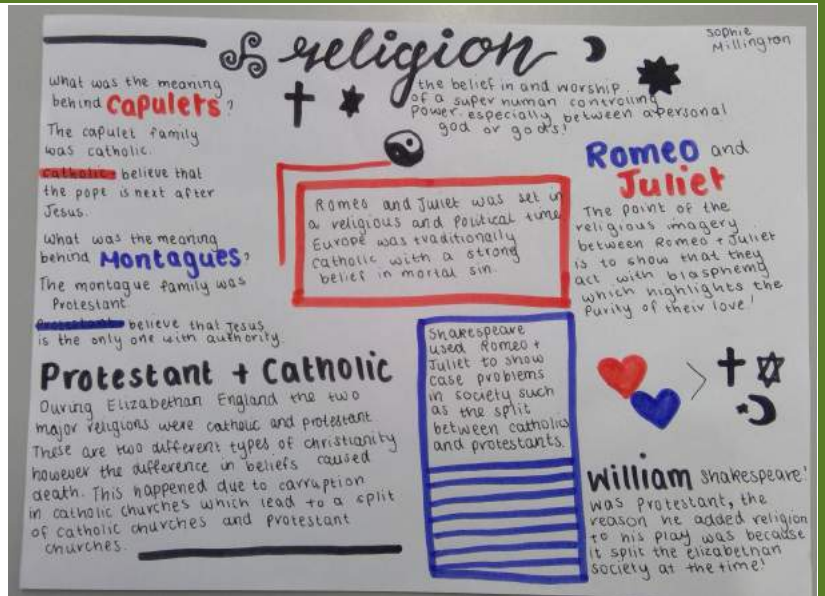 religion
Sophie
Millington
the belief in and worship
of a super human controlling
power. especially between a personal
god or gods!
What was the meaning
behind Capulets?
The capulet family
was catholic.
catholic believe that
the pope is next after
Jesus.
What was the meaning
behind Montagues?
The montague family was
Protestant.
Protestant believe that Jesus
is the only one with authority.
Romeo and Juliet was set in
a religious and Political time
Europe was traditionally
catholic with a strong
belief in mortal sin.
Romeo and
Juliet
The point of the
religious imagery
between Romeo + Juliet
is to show that they
act with blasphemy
which highlights the
Purity of their love!
Protestant + Catholic
During Elizabethan England the two
major religions were catholic and protestant
These are two different types of christianity
however the difference in beliefs caused
death. This happened due to carruption
in catholic churches which lead to a split
of catholic churches and Protestant
churches.
Shakespeare
used Romeo +
Juliet to show
case problems
in society such
as the split
between catholics
and protestants.
William Shakespeare!
was Protestant, the
reason he added religion
to his play was because
it split the elizabethan
society at the time!